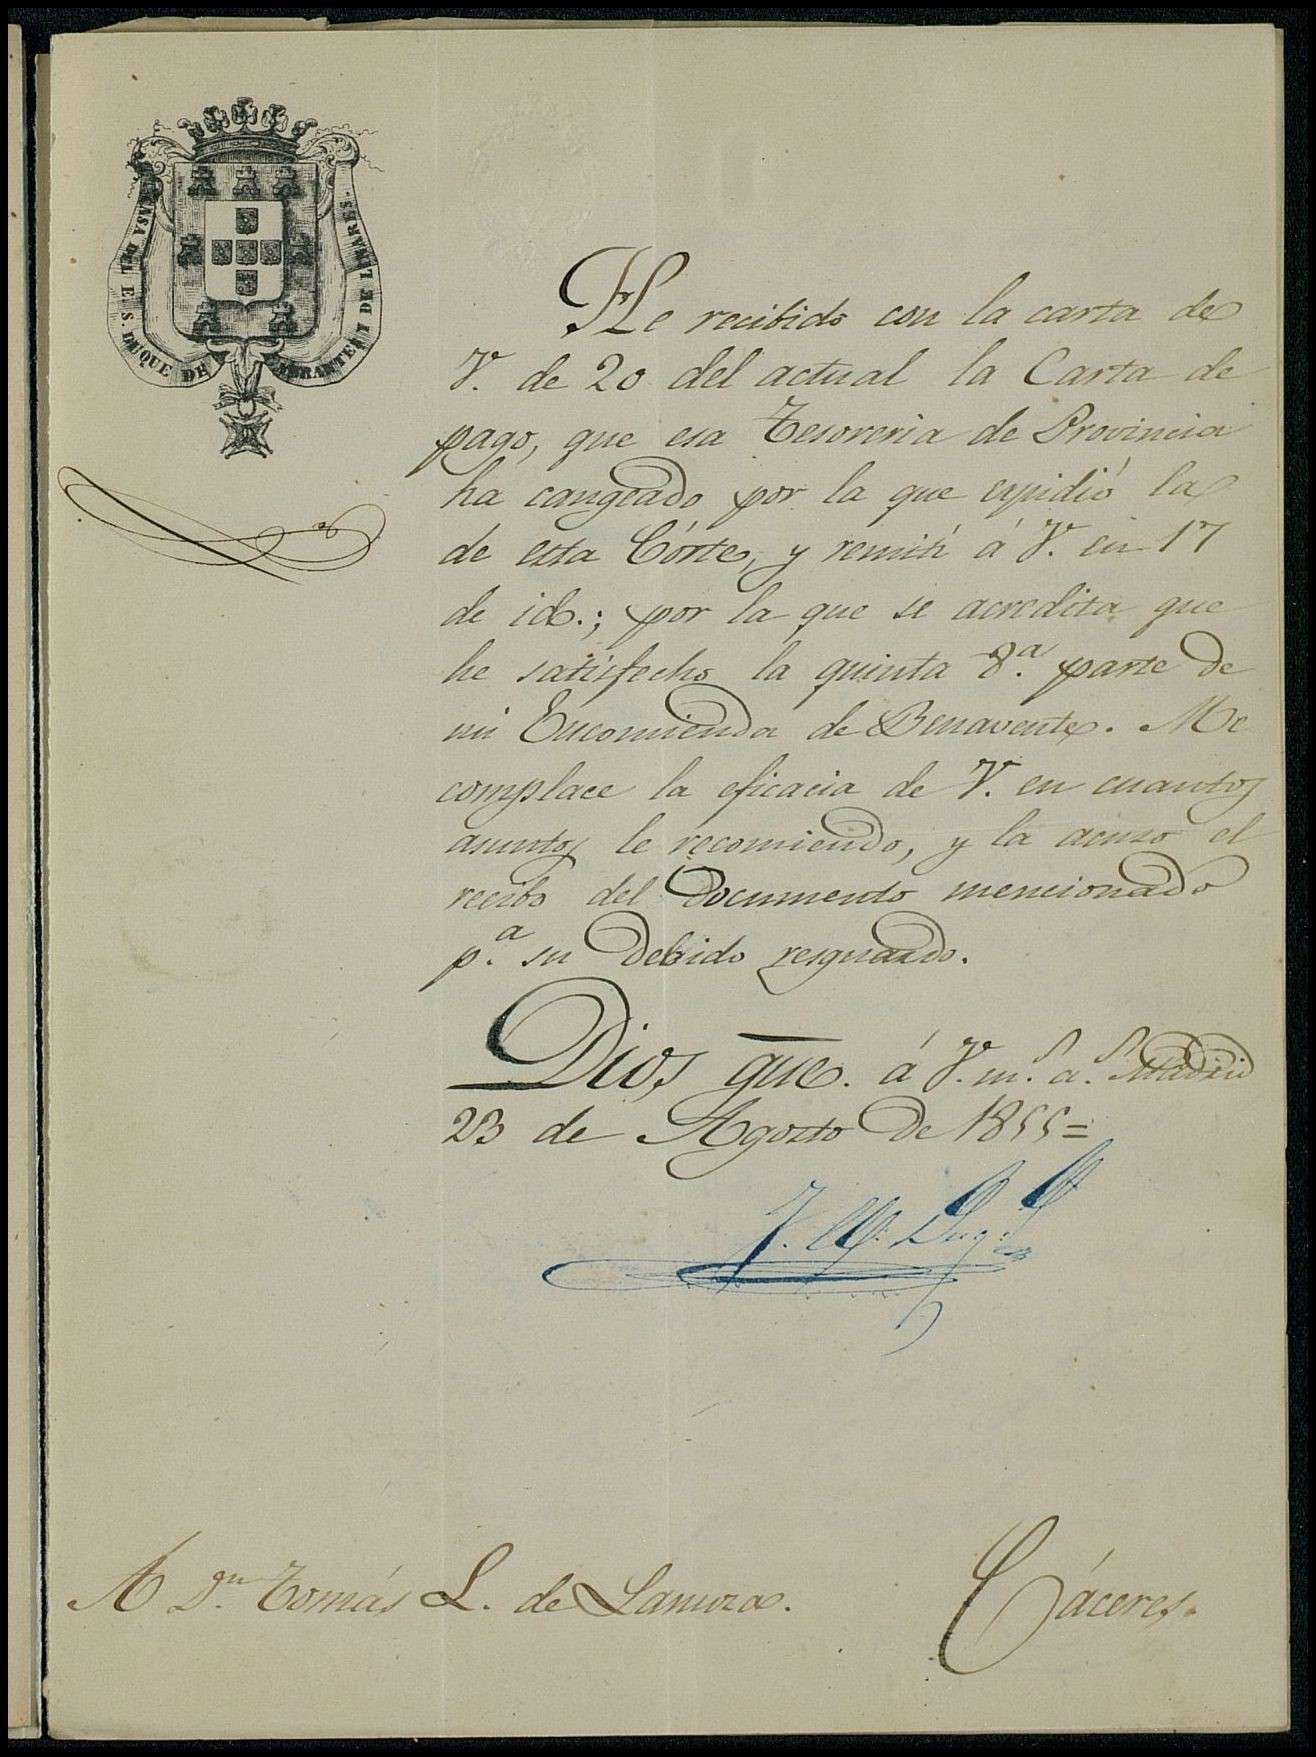 CASA DEL E. S. DUQUE DE ABRANTES I DE LINARES.
He recibido con la carta de
V. de 20 del actual la Carta de
pago, que esa Tesoreria de Provincia
ha cangeado por la que expidió la
de esta Córte, y remití á V. en 17
de id.; por la que se acredita que
he satisfecho la quinta 8.ª parte de
mi Encomienda de Benavente. Me
complace la eficacia de V. en cuantos
asuntos le recomiendo, y la acuso el
recibo del Documento mencionado
p.ª su debido resguardo.
Dios gue. á V. m.s a.s Madrid
23 de Agosto de 1855=
A D.n Tomás L. de Lanuza.
Cáceres.